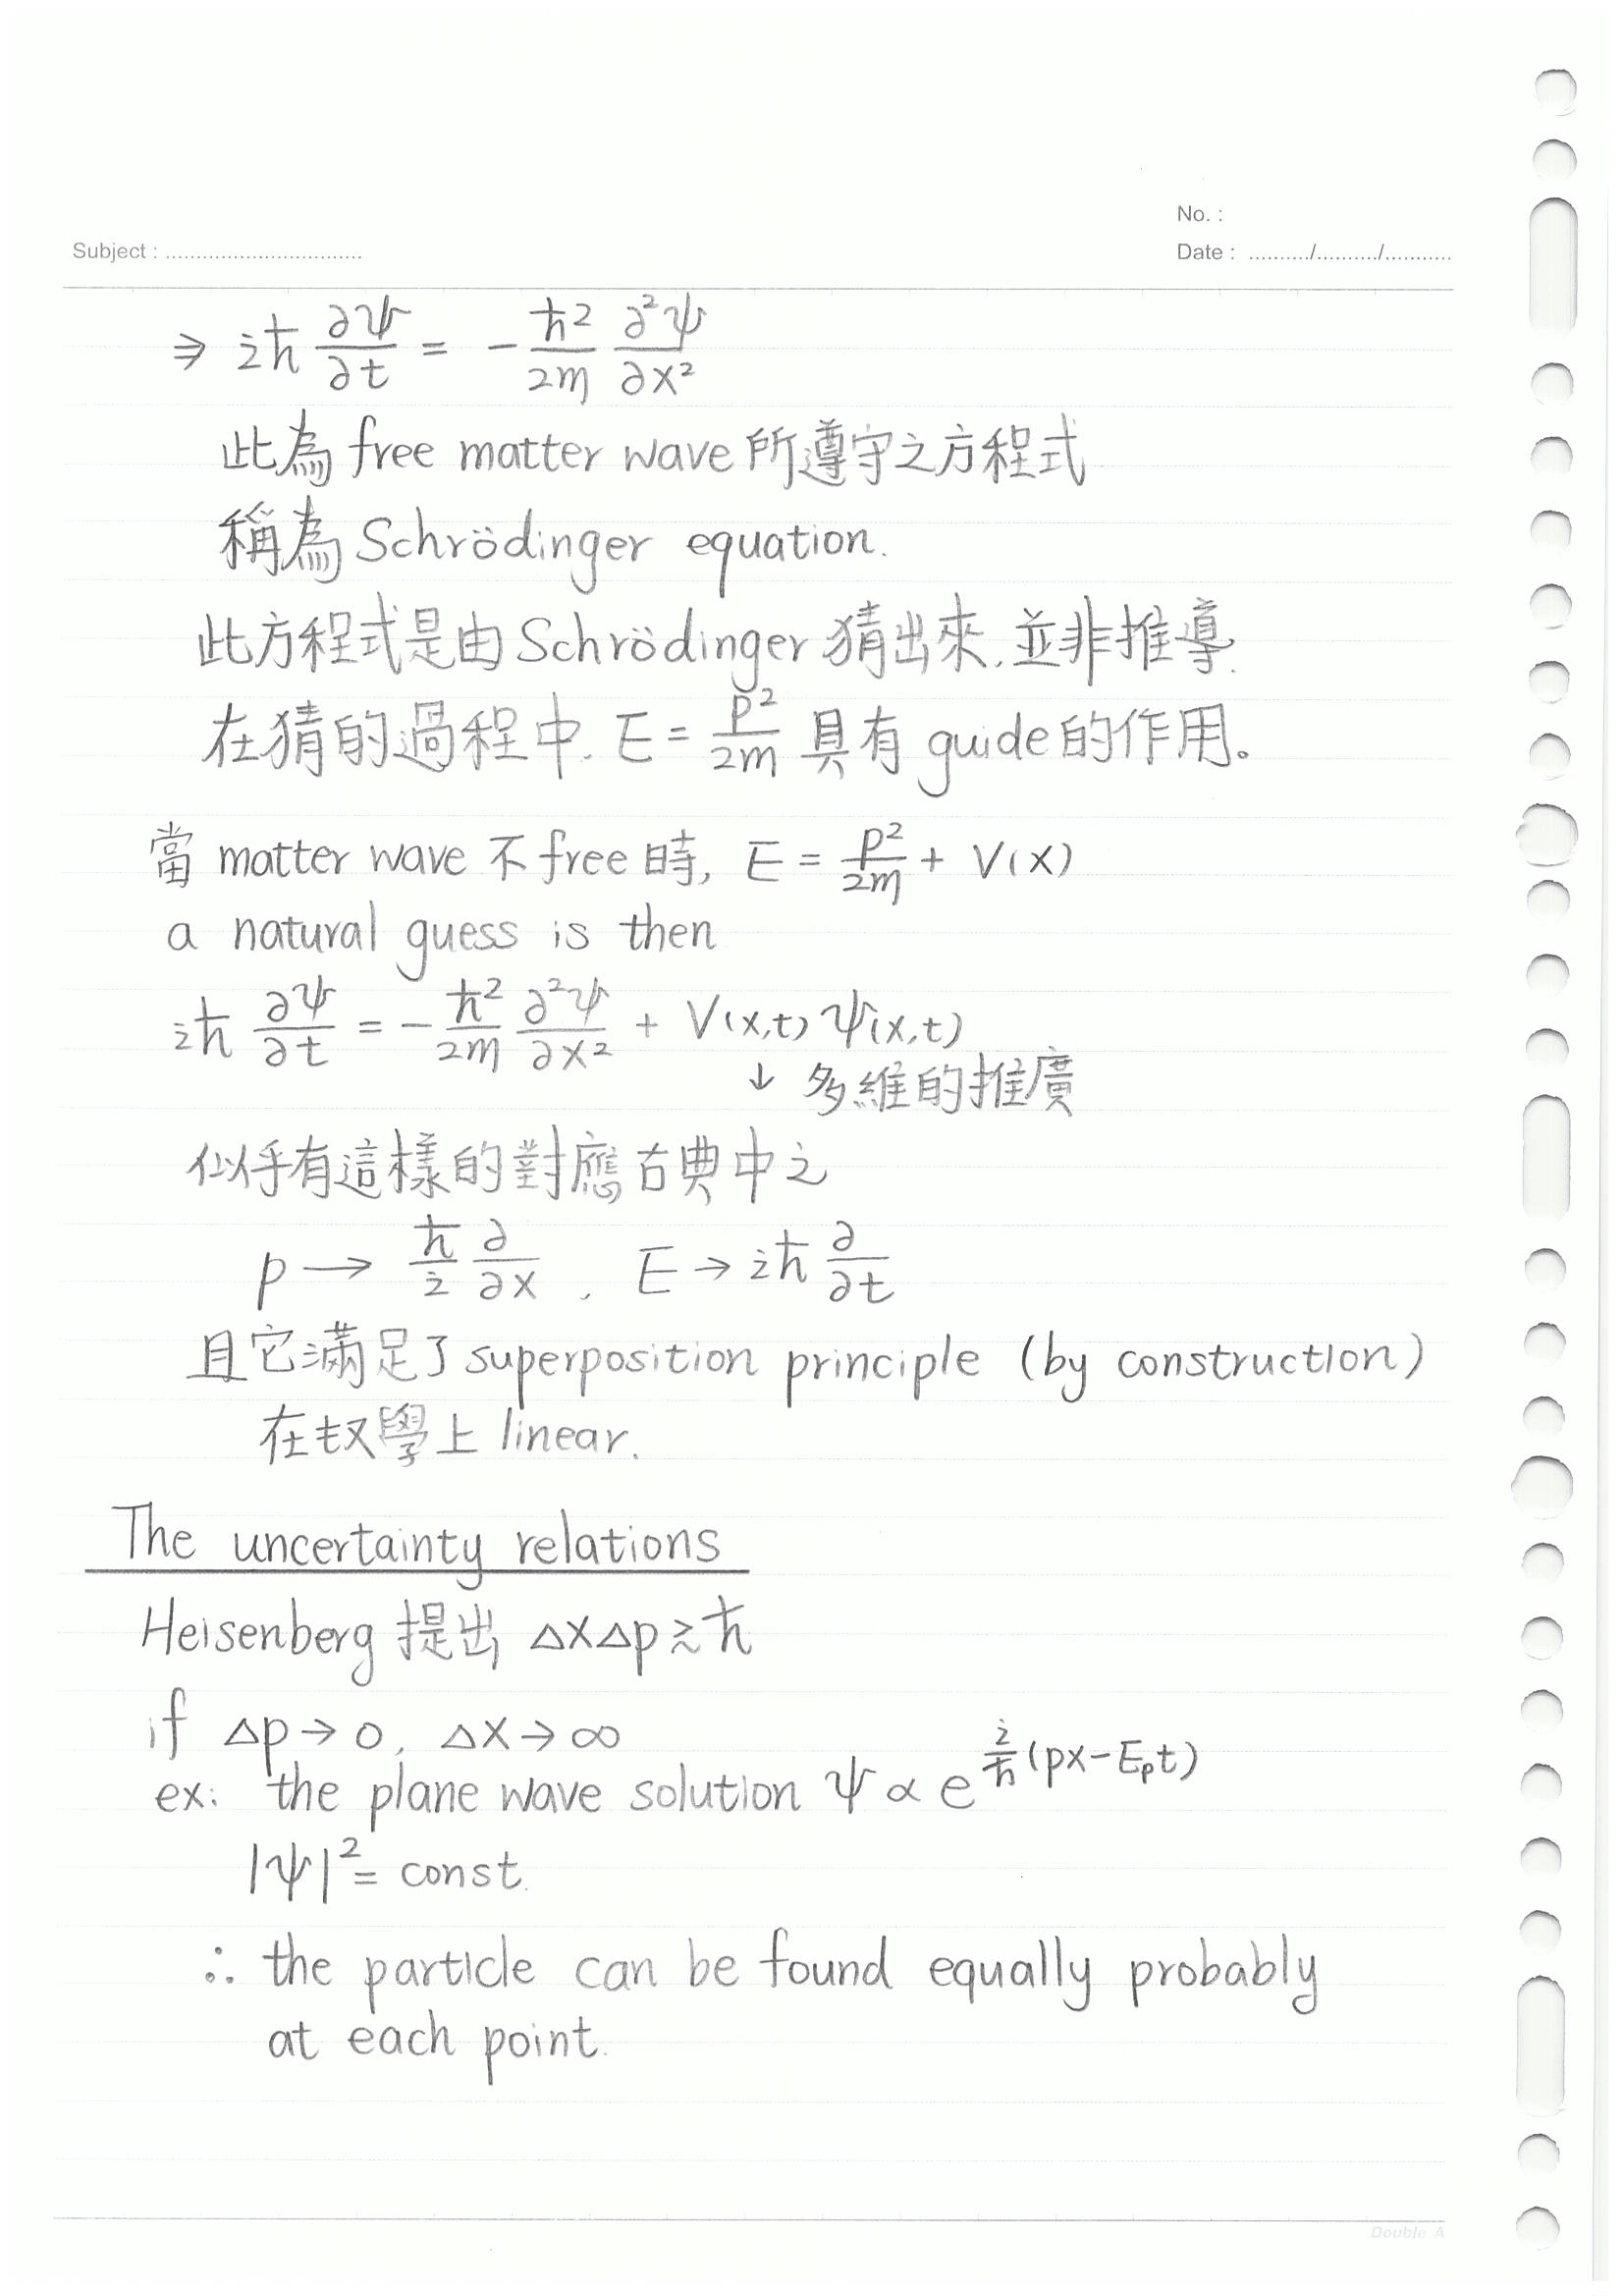 No. :
Subject : ..............................
Date : ........../........../...........
⇒ iħ ∂ψ/∂t = - ħ²/2m ∂²ψ/∂x²
此為 free matter wave 所遵守之方程式
稱為 Schrödinger equation.
此方程式是由 Schrödinger 猜出來, 並非推導.
在猜的過程中, E = p²/2m 具有 guide 的作用。
當 matter wave 不 free 時, E = p²/2m + V(x)
a natural guess is then
iħ ∂ψ/∂t = - ħ²/2m ∂²ψ/∂x² + V(x,t) ψ(x,t)
↓ 多維的推廣
似乎有這樣的對應古典中之
p → ħ/i ∂/∂x , E → iħ ∂/∂t
且它滿足了 superposition principle (by construction)
在数學上 linear.
The uncertainty relations
Heisenberg 提出 ΔxΔp ≳ ħ
if Δp → 0, Δx → ∞
ex: the plane wave solution ψ ∝ e^{i/ħ (px - E_p t)}
|ψ|² = const.
∴ the particle can be found equally probably
at each point.
Double A